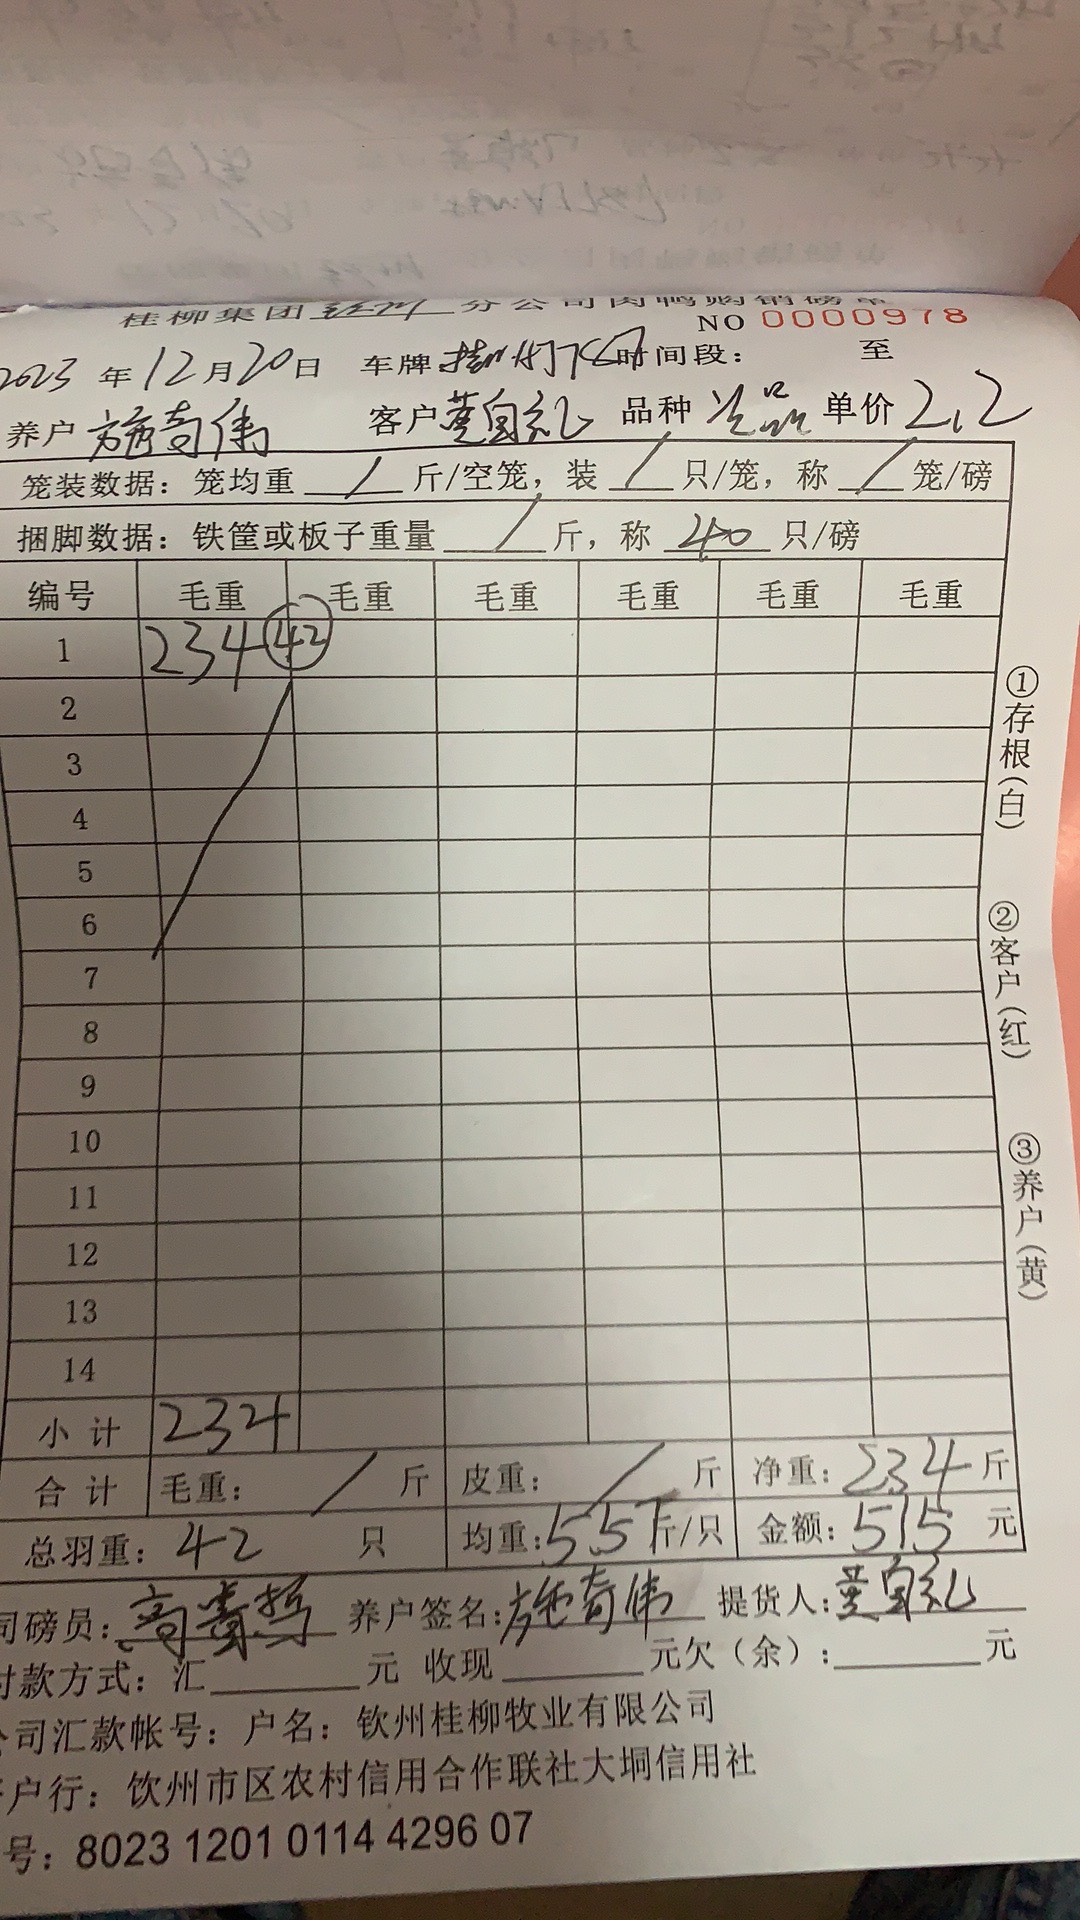 桂柳集团 分公司肉鸭购销磅单
NO 0000978
2023 年 12 月 20 日 车牌 时间段: 至
养户 施奇伟 客户 黄自礼 品种 单价 2.2
笼装数据: 笼均重 / 斤/空笼, 装 / 只/笼, 称 / 笼/磅
捆脚数据: 铁筐或板子重量 / 斤, 称 40 只/磅
编号 毛重 毛重 毛重 毛重 毛重 毛重
1 234 42
2
3
4
5
6
7
8
9
10
11
12
13
14
小计 234
合计 毛重: / 斤 皮重: / 斤 净重: 234 斤
总羽重: 42 只 均重: 5.57 斤/只 金额: 515 元
司磅员: 养户签名: 施奇伟 提货人: 黄自礼
付款方式: 汇 元 收现 元欠(余): 元
公司汇款帐号: 户名: 钦州桂柳牧业有限公司
开户行: 钦州市区农村信用合作联社大垌信用社
号: 8023 1201 0114 4296 07
①存根(白)
②客户(红)
③养户(黄)